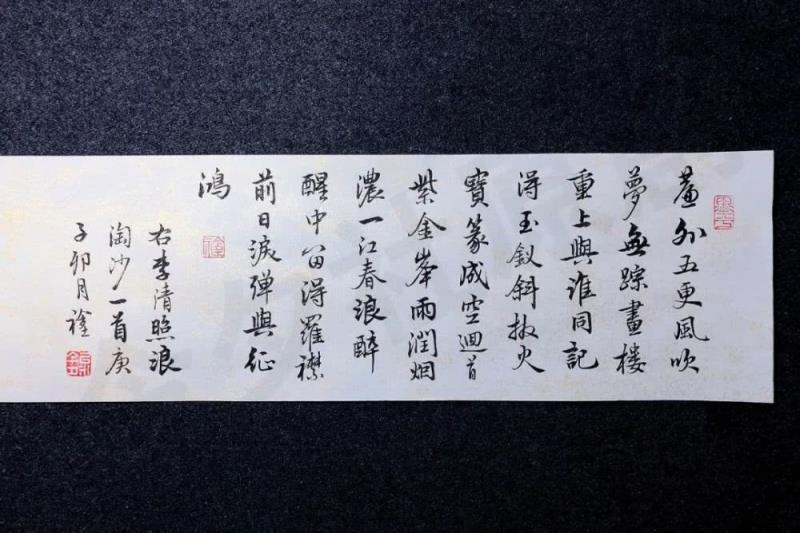 簾外五更風吹
夢無踪畫樓
重上與誰同記
得玉釵斜撥火
寶篆成空迴首
紫金峯雨潤烟
濃一江春浪醉
醒中留得羅襟
前日淚彈與征
鴻
右李清照浪
淘沙一首庚
子卯月